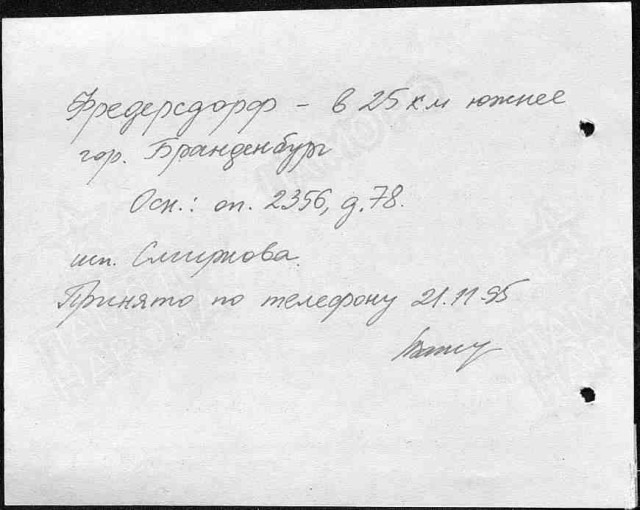 Фредерсдорф – в 25 км южнее
гор. Бранденбург
Осн.: оп. 2356, д. 78.
исп. Смирнова.
Принято по телефону 21.11.95